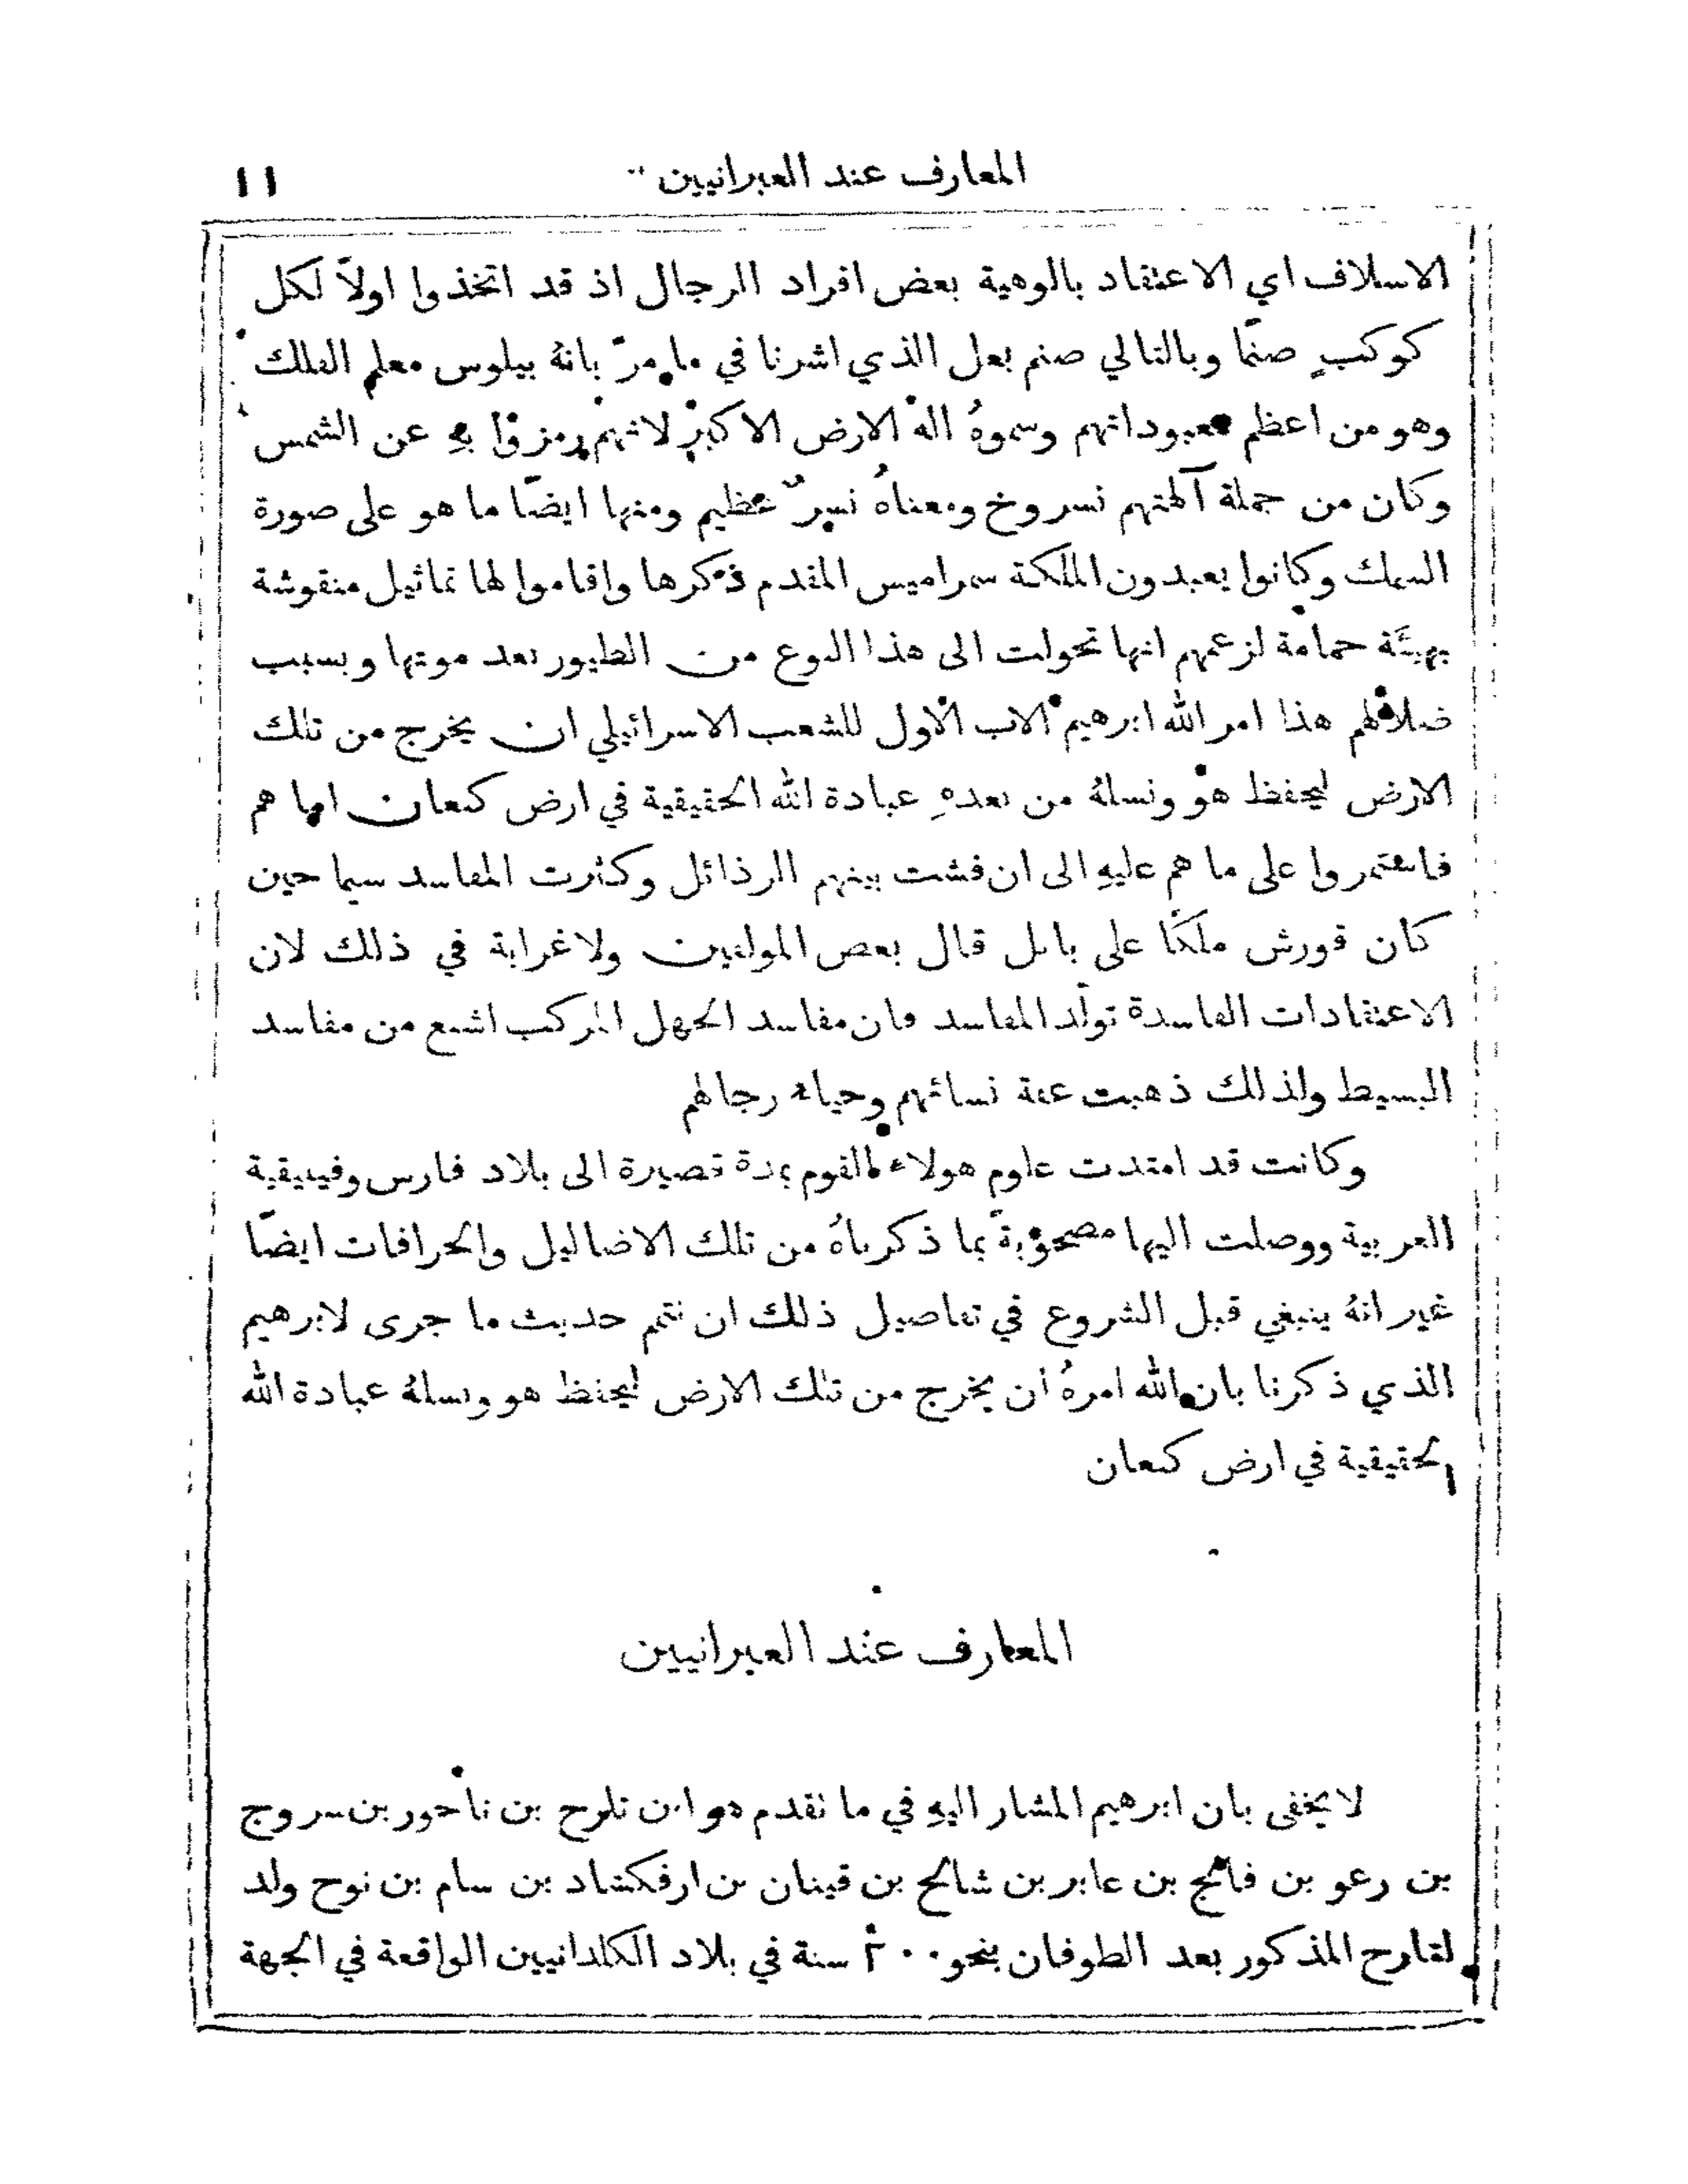 المعارف عند العبرانيين
١١
الاسلاف اي الاعتقاد بالوهية بعض افراد الرجال اذ قد اتخذوا اولاً لكل
كوكبٍ صنمًا وبالتالي صنم بعل الذي اشرنا في ما مرّ بانهُ بيلوس معلم الفلك
وهو من اعظم معبوداتهم وسموهُ اله الارض الاكبر لانهم رمزوا به عن الشمس
وكان من جملة آلهتهم نسروخ ومعناهُ نسرٌ عظيم ومنها ايضًا ما هو على صورة
السمك وكانوا يعبدون الملكة سمراميس المقدم ذكرها واقاموا لها تماثيل منقوشة
بهيئة حمامة لزعمهم انها تحولت الى هذا النوع من الطيور بعد موتها وبسبب
ضلالهم هذا امر الله ابرهيم الاب الاول للشعب الاسرائيلي ان يخرج من تلك
الارض ليحفظ هو ونسلهُ من بعدهِ عبادة الله الحقيقية في ارض كنعان اما هم
فاستمروا على ما هم عليهِ الى ان فشت بينهم الرذائل وكثرت المفاسد سيما حين
كان قورش ملكًا على بابل قال بعض المولفين ولا غرابة في ذلك لان
الاعتقادات الفاسدة تولّد المفاسد وان مفاسد الجهل المركب اشنع من مفاسد
البسيط ولذلك ذهبت عفة نسائهم وحياء رجالهم
وكانت قد امتدت علوم هولاء القوم بمدة قصيرة الى بلاد فارس وفينيقية
العربية ووصلت اليها مصحوبةً بما ذكرناهُ من تلك الاضاليل والخرافات ايضًا
غير انهُ ينبغي قبل الشروع في تفاصيل ذلك ان نتمم حديث ما جرى لابرهيم
الذي ذكرنا بان الله امرهُ ان يخرج من تلك الارض ليحفظ هو ونسلهُ عبادة الله
الحقيقية في ارض كنعان
المعارف عند العبرانيين
لا يخفى بان ابرهيم المشار اليهِ في ما تقدم هو ابن تارح بن ناحور بن سروج
بن رعو بن فالج بن عابر بن شالح بن قينان بن ارفكشاد بن سام بن نوح ولد
لتارح المذكور بعد الطوفان بنحو ٢٠٠ سنة في بلاد الكلدانيين الواقعة في الجهة